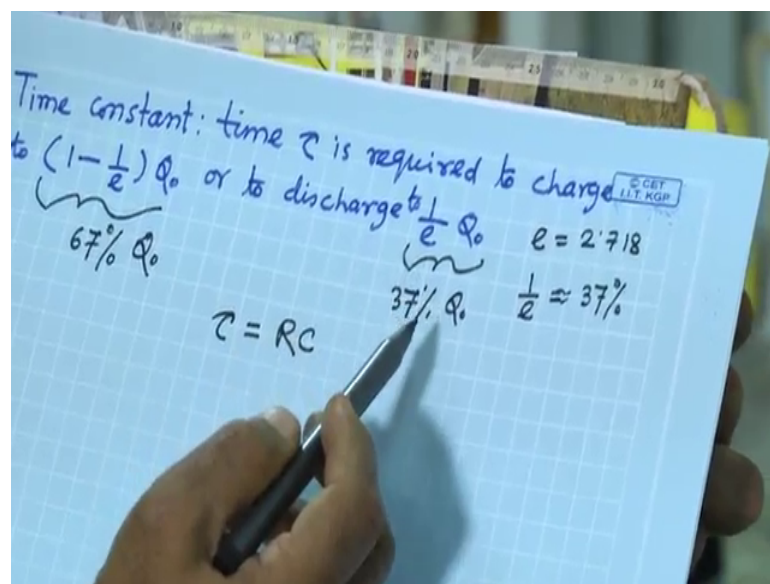 Time constant: time τ is required to charge
to (1 - 1/e) Q₀ or to discharge to 1/e Q₀
© CET
I.I.T. KGP
67% Q₀
37% Q₀
e = 2.718
1/e ≈ 37%
τ = RC